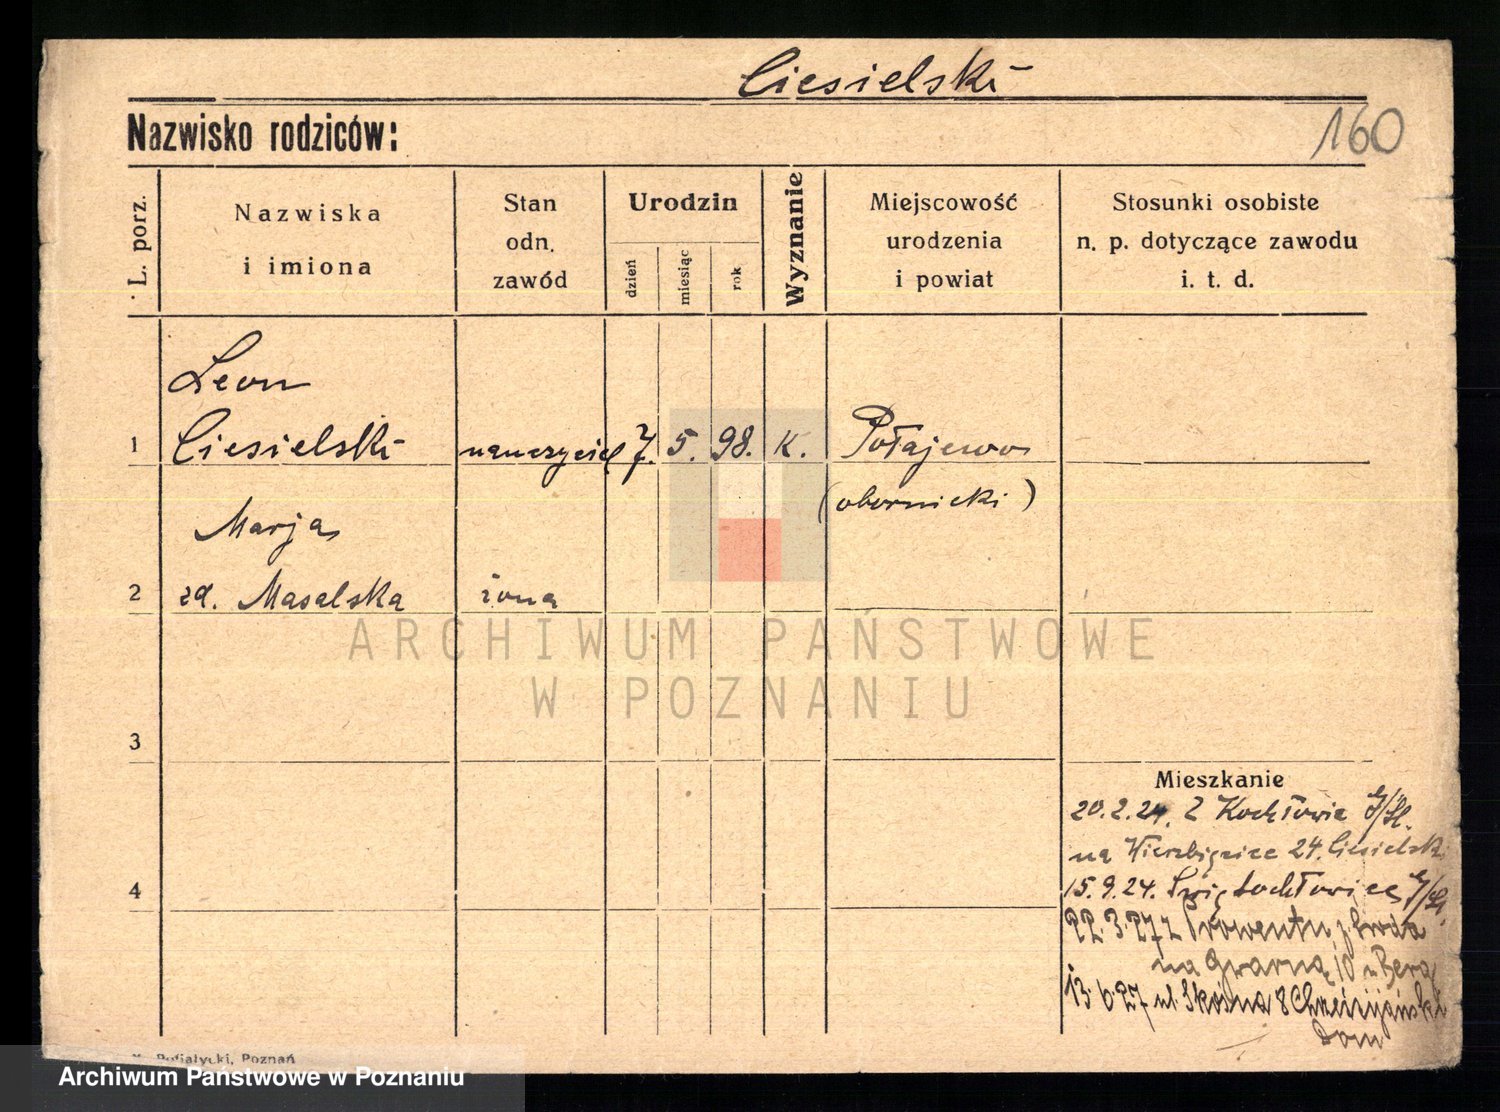 Ciesielski
Nazwisko rodziców:
160
L. porz.
Nazwiska
i imiona
Stan
odn.
zawód
Urodzin
dzień
miesiąc
rok
Wyznanie
Miejscowość
urodzenia
i powiat
Stosunki osobiste
n. p. dotyczące zawodu
i. t. d.
Leon
1 Ciesielski nauczyciel 7. 5. 98. K. Połajewo
(obornicki)
Marja
2 zd. Masalska żona
ARCHIWUM PAŃSTWOWE
W POZNANIU
3
Mieszkanie
20.2.24. Z Kochłowic G/Śl.
na Wierzbięcice 24. Ciesielski
4
15.9.24.
22.3.27 z Prowentu p. Środa
na Gwarną 10 u Berg
13.6.27 ul. Skośna 8 Chrześcijański
Dom
Pofiałycki, Poznań
Archiwum Państwowe w Poznaniu